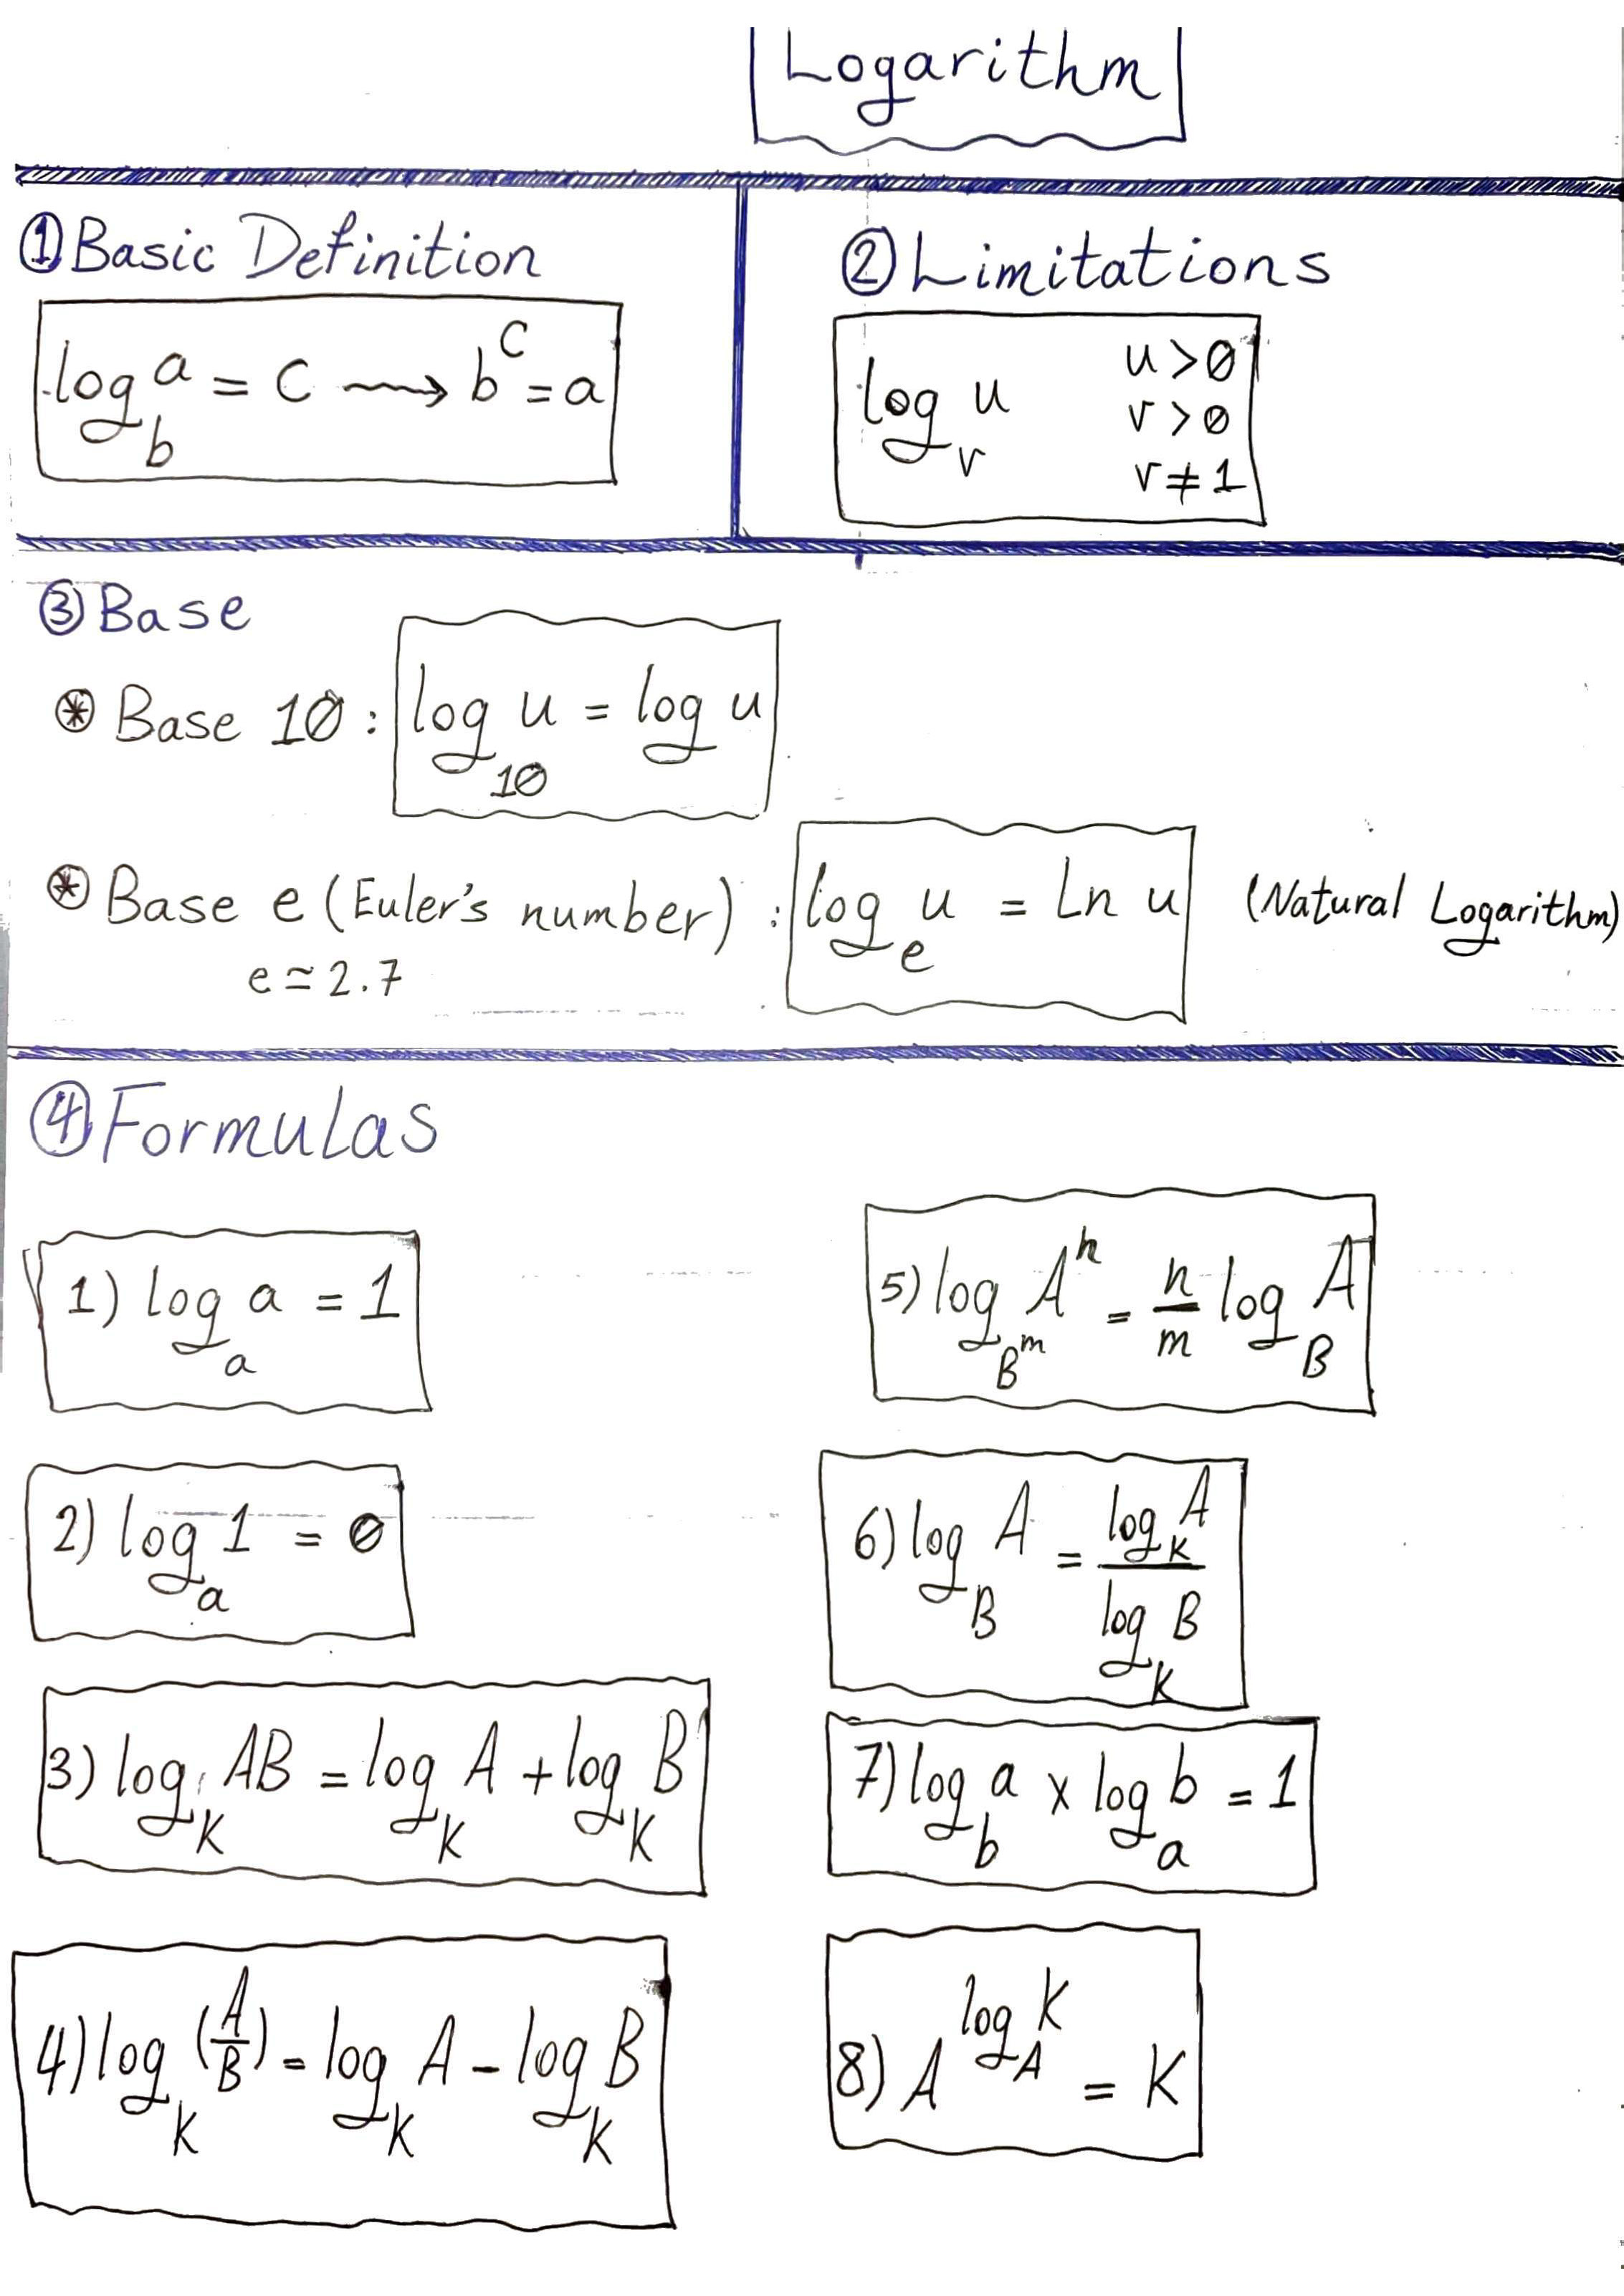 Logarithm
① Basic Definition
log_b a = c ⟶ b^c = a
② Limitations
log_v u
u > 0
v > 0
v ≠ 1
③ Base
⊛ Base 10 : log_10 u = log u
⊛ Base e (Euler's number) : log_e u = Ln u (Natural Logarithm)
e ≃ 2.7
④ Formulas
1) log_a a = 1
2) log_a 1 = 0
3) log_K AB = log_K A + log_K B
4) log_K (A/B) = log_K A - log_K B
5) log_{B^m} A^n = n/m log_B A
6) log_B A = log_K A / log_K B
7) log_b a × log_a b = 1
8) A^{log_A K} = K